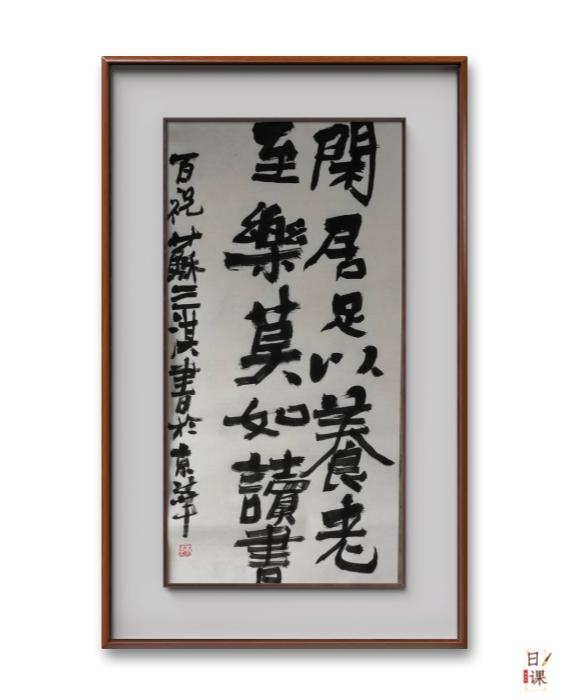 閑居足以養老
至樂莫如讀書
百祝蘇三淇書於京華
日课